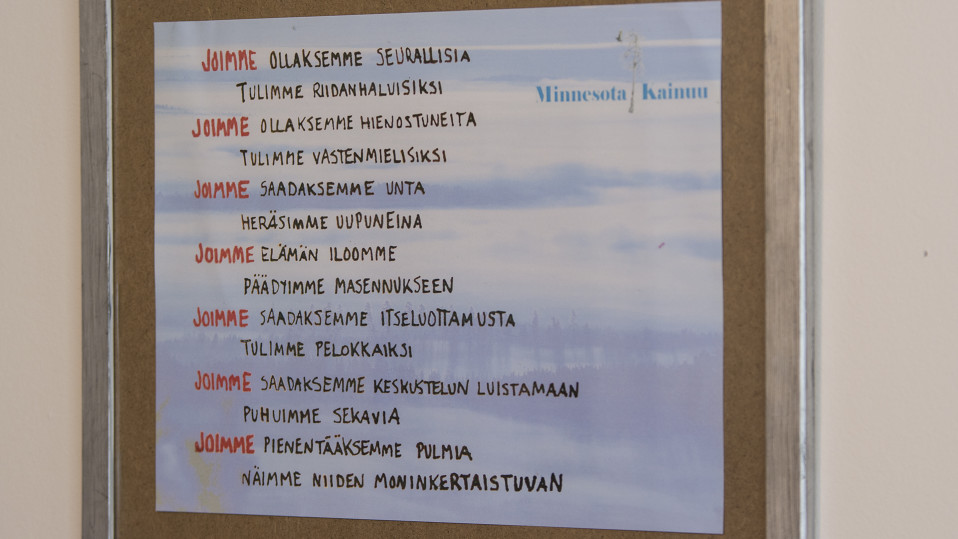 JOIMME OLLAKSEMME SEURALLISIA
TULIMME RIIDANHALUISIKSI
Minnesota Kainuu
JOIMME OLLAKSEMME HIENOSTUNEITA
TULIMME VASTENMIELISIKSI
JOIMME SAADAKSEMME UNTA
HERÄSIMME UUPUNEINA
JOIMME ELÄMÄN ILOOMME
PÄÄDYIMME MASENNUKSEEN
JOIMME SAADAKSEMME ITSELUOTTAMUSTA
TULIMME PELOKKAIKSI
JOIMME SAADAKSEMME KESKUSTELUN LUISTAMAAN
PUHUIMME SEKAVIA
JOIMME PIENENTÄÄKSEMME PULMIA
NÄIMME NIIDEN MONINKERTAISTUVAN